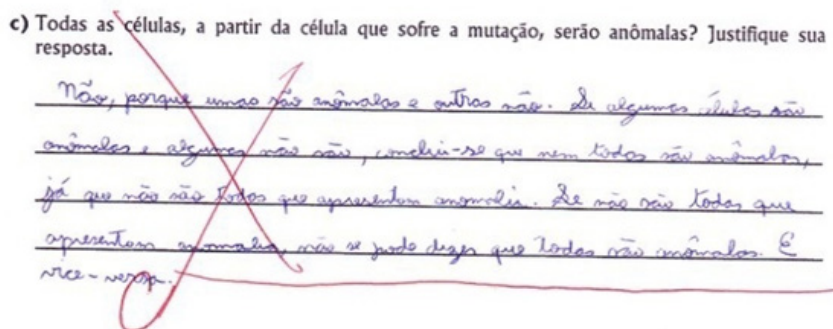 c) Todas as células, a partir da célula que sofre a mutação, serão anômalas? Justifique sua
resposta.
Não, porque umas são anômalas e outras não. Se algumas células são
anômalas e algumas não são, conclui-se que nem todas são anômalas,
já que não são todas que apresentam anomalia. Se não são todas que
apresentam anomalia, não se pode dizer que todas são anômalas. E
vice-versa.